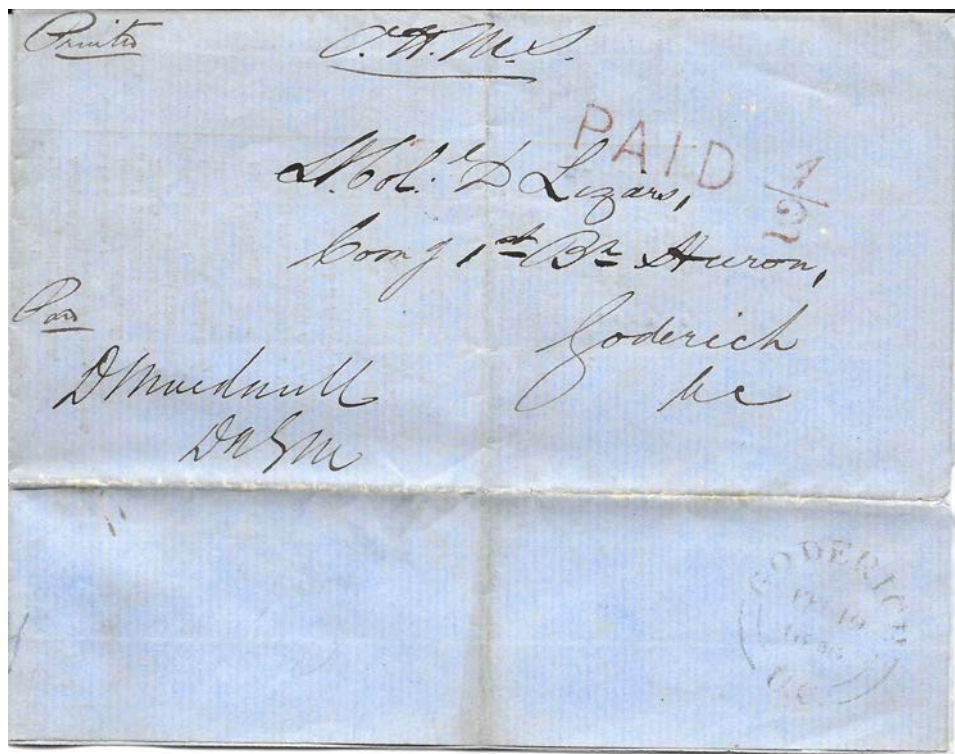 Printed
O.H.M.S.
PAID 1/2
Lt. Col. D Lizars,
Comg 1st Bn Huron,
Goderich
UC
Paid
D Macdonell
DAGM
GODERICH
U.C.